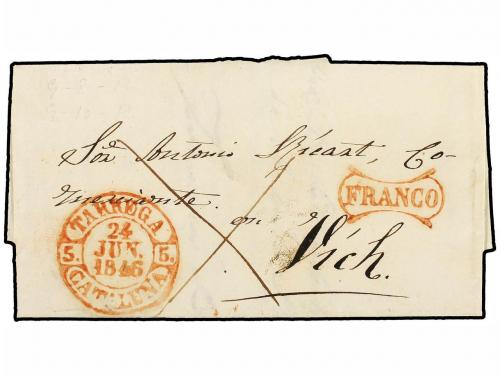 Sor. Antonio Ricart, Co-
merciante.
en Vich.
FRANCO
TARREGA
24
JUN.
1846
5. 5.
CATALUÑA